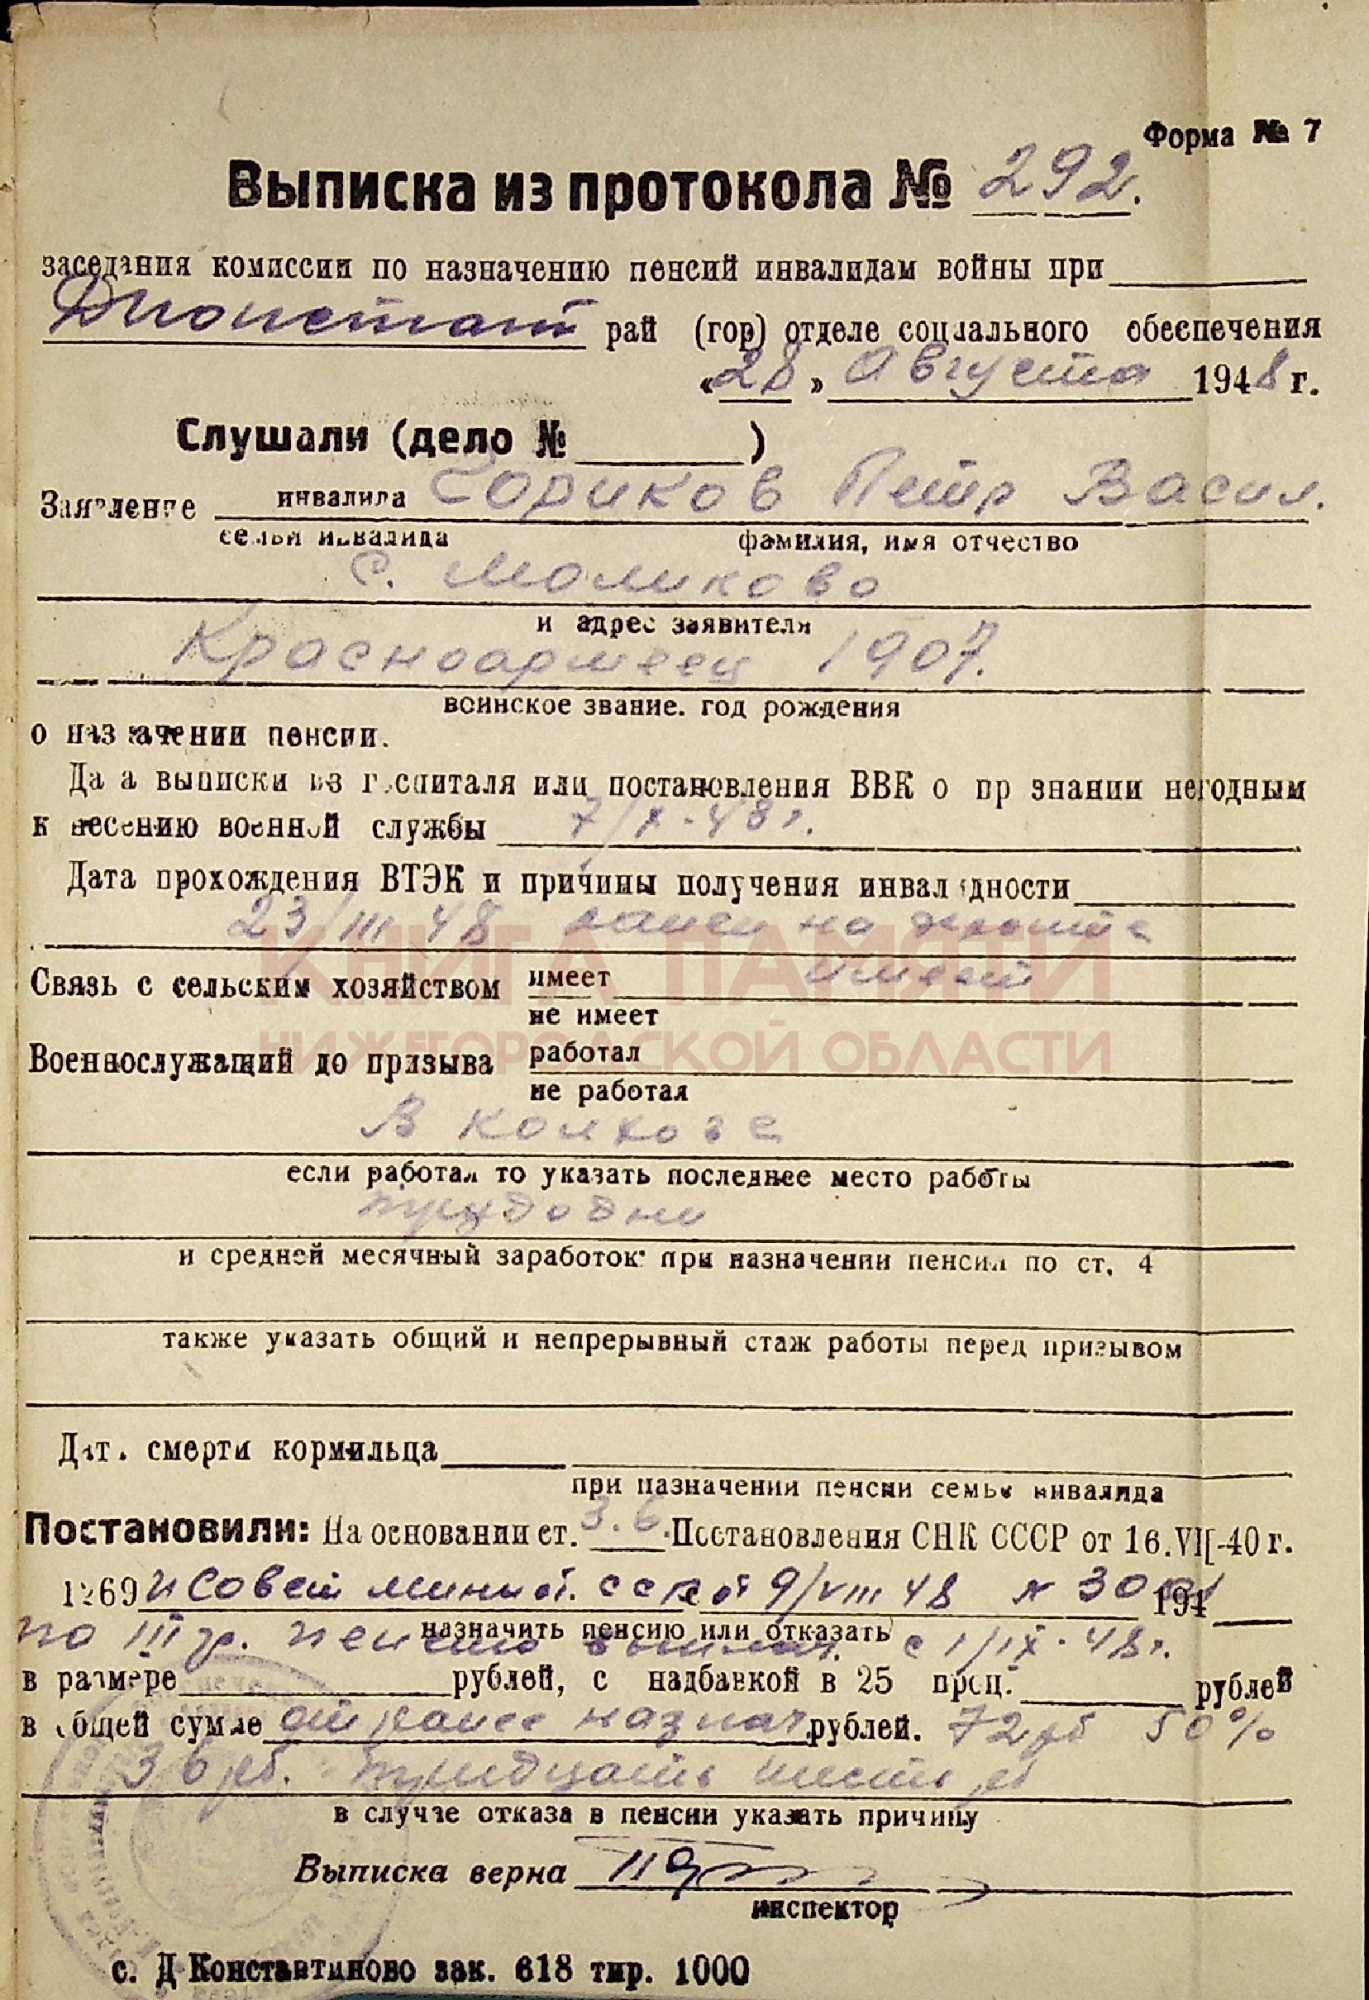 Форма № 7
Выписка из протокола № 292.
заседания комиссии по назначению пенсий инвалидам войны при
рай (гор) отделе социального обеспечения
«28» Августа 1948 г.
Слушали (дело № )
Заявление инвалида Сориков Петр Васил.
семьи инвалида фамилия, имя отчество
с. Маликово
и адрес заявителя
Красноармеец 1907.
воинское звание. год рождения
о назначении пенсии.
Дата выписки из госпиталя или постановления ВВК о признании негодным
к несению военной службы 7/X-48г.
Дата прохождения ВТЭК и причины получения инвалидности
23/III 48 ранен на фронте
Связь с сельским хозяйством имеет имеет
не имеет
КНИГА ПАМЯТИ
НИЖЕГОРОДСКОЙ ОБЛАСТИ
Военнослужащий до призыва работал
не работая
В колхозе
если работал то указать последнее место работы
трудодни
и средней месячный заработок: при назначении пенсии по ст. 4
также указать общий и непрерывный стаж работы перед призывом
Дата смерти кормильца
при назначении пенсии семье инвалида
Постановили: На основании ст. 3.6. Постановления СНК СССР от 16.VII-40 г.
1269 и Совет минист. ССР от 9/VIII 48 № 194
назначить пенсию или отказать
по III гр. пенсию с 1/IX-48г.
в размере рублей, с надбавкой в 25 проц. рублей
в общей сумме от ранее назнач рублей. 72 рб 50%
36 рб. тридцать шесть рб
в случае отказа в пенсии указать причину
Выписка верна
инспектор
с. Д-Константиново зак. 618 тир. 1000